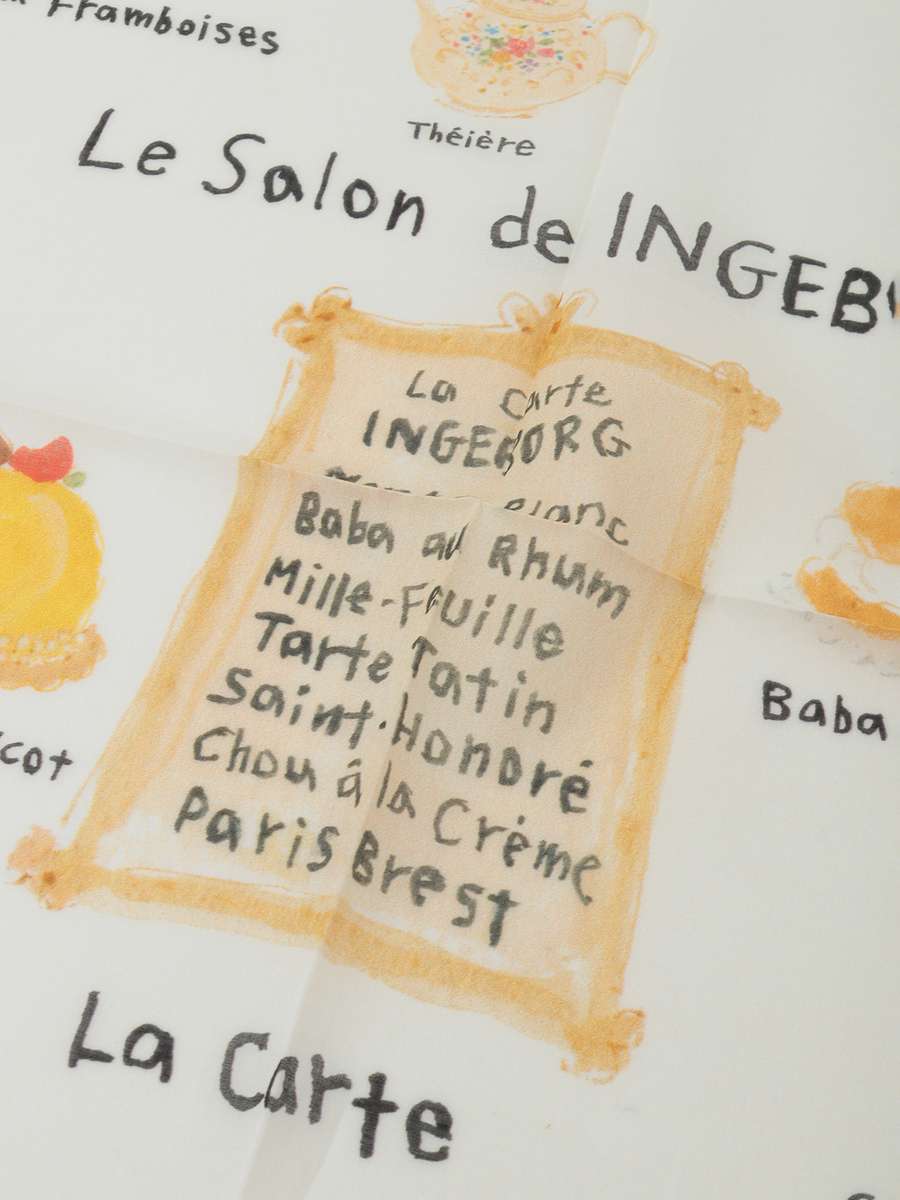 Framboises
Théière
Le Salon de INGEB
La Carte
INGEBORG
Blanc
Baba au Rhum
Mille-Feuille
Tarte Tatin
Saint-Honoré
Chou á la Crème
Paris Brest
cot
Baba
La Carte